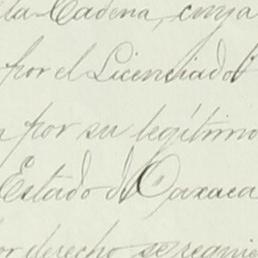 la Cadena, cuya
por el Licenciado
por su legítimo
Estado d Oaxaca
por derecho se requie